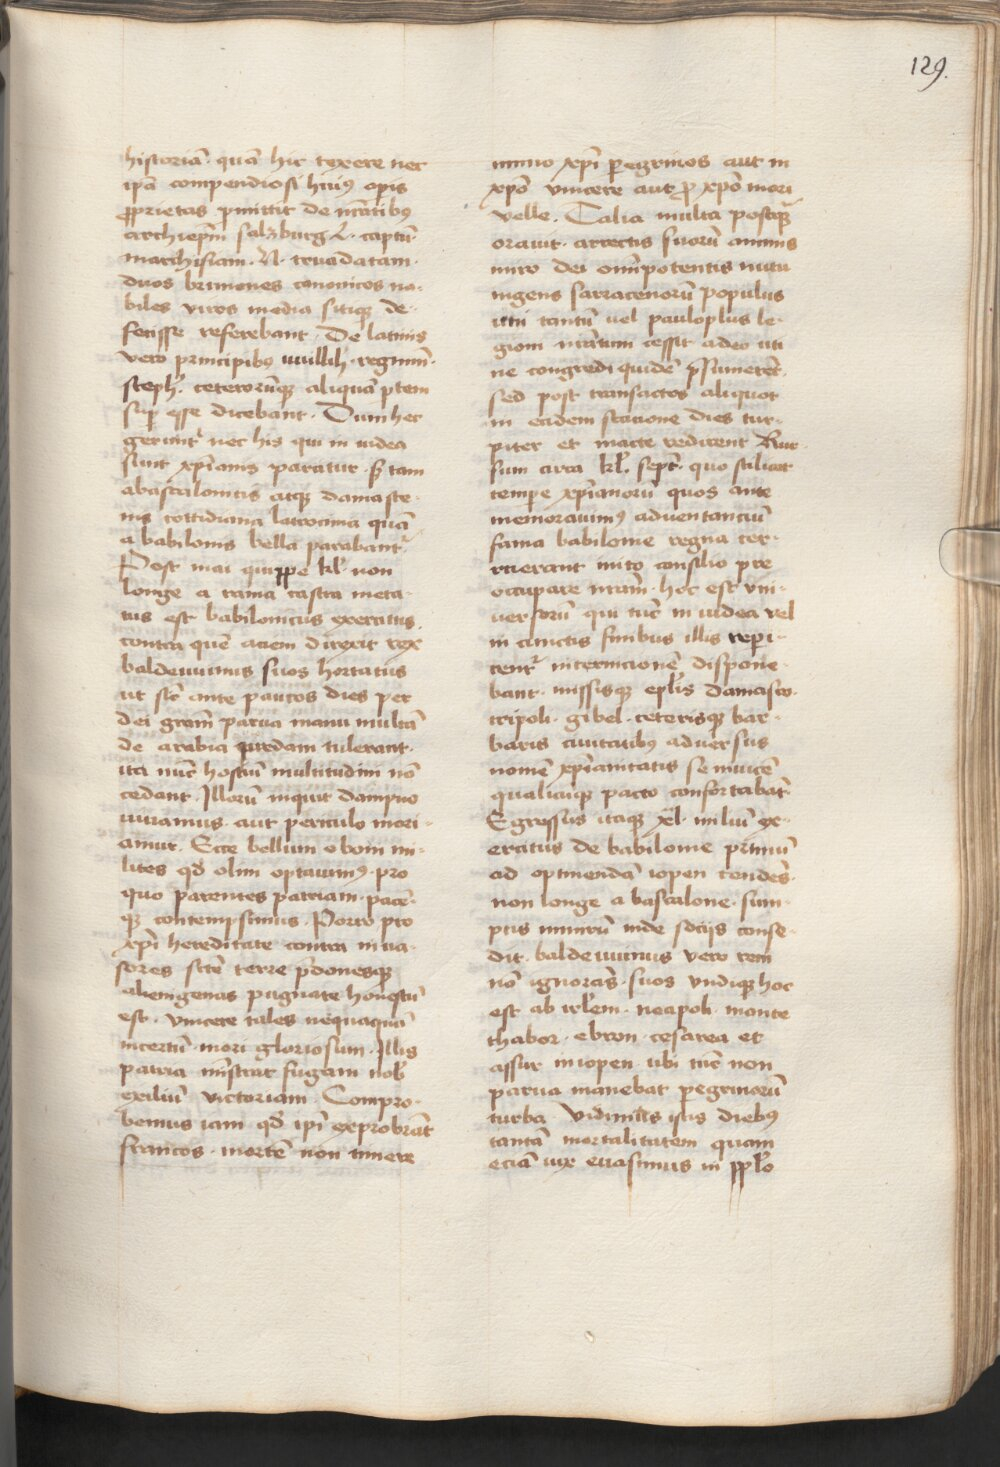 129.
historiā · quā hic texere nec
ipā compendiosi huiꝰ opis
ꝓprietas ꝑmittit de nr̄atibꝰ
archiep̄m salzburg
marchisiam · N · truadatam ·
duos brunones canonicos no-
biles viros media sitiqꝫ de-
fecisse referebant · De latinis
vero principibꝰ
steph̄ · ceterorūqꝫ aliquā ꝑtem
suꝑ esse dicebant · Dum hec
gerunt᷑ nec his qui in iudea
sunt xp̄ianis paratur · sꝫ tam
abascalonitis atqꝫ damasce-
nis cottidiana latrocinia quā
a babilonis bella parabant᷑
Post mai quippe kl̄ · non
longe a rama castra meta-
tus est babilonicus exercitus ·
contra quē aciem direxit rex
baldewinus suos hortatus
ut sic̄ ante paucos dies per
dei gram̄ parua manu multā
de arabia predam tulerant ·
ita nūc hostiū multitudini nō
cedant · Illorū inquit dampno
viuamus · aut periculo mori-
amur · Ecce bellum o boni mi-
lites qd̄ olim optauimꝰ · pro
quo parentes patriam · pacē-
qꝫ contempsimus · Porro pro
xp̄i hereditate contra inua-
sores scē terre p̄donesqꝫ
alienigenas pugnare honestū
est · vincere tales nequaquā
incertū · mori gloriosum · Illis
patria mīstrat fugam nob̄
exiliū victoriam · Compro-
bemus iam qd̄ ip̄i exprobrāt
francos · mortē non timere
immo xp̄i ꝑegrinos aut in
xpō vincere aut ꝓ xpō mori
velle · Talia multa postqꝫ
orauit · arrectis suorū animis
miro dei omīpotentis nutu
ingens sarracenorū populus
uni tantū uel pauloplus le-
gioni nr̄arum cessit adeo uti
ne congredi quidē p̄sumeret̄ ·
sed post transactos aliquot
in eadem statione dies tur-
piter et macte redirent Rur-
sum circa kl̄ · sept̄ · quo scilicet
tempe xp̄ianorū quos ante
memorauimꝰ aduentanciū
fama babilonie regna ter-
ruerant inito consilio pre
occupare nr̄am · hoc est vni-
uersorū qui tūc in iudea vel
in cunctis finibus illis reperi-
rent᷑ internicionē dispone-
bant · missisqꝫ epl̄is damasco ·
tripoli · gibel · ceterisqꝫ bar-
baris ciuitatibꝰ aduersus
nomē xp̄ianitatis se inuicē
qualicūqꝫ pacto confortabāt̄
Egressus itaqꝫ xl̄ · miliū ex-
ercitus de babilonie primū
ad optinendā iopen tendēs ·
non longe abascalone · sum-
ptis inde socijs conse-
dit · baldewinus vero rem
nō ignorās · suos vndiqꝫ hoc
est ab irl̄em · neapoli · monte
thabor · ebron · cesarea et
assur iniopen ubi tūc non
parua manebat ꝑegrinorū
turba vidimus istis diebꝰ
tantā mortalitatem quam
eciā vix euasimus in ppl̄o